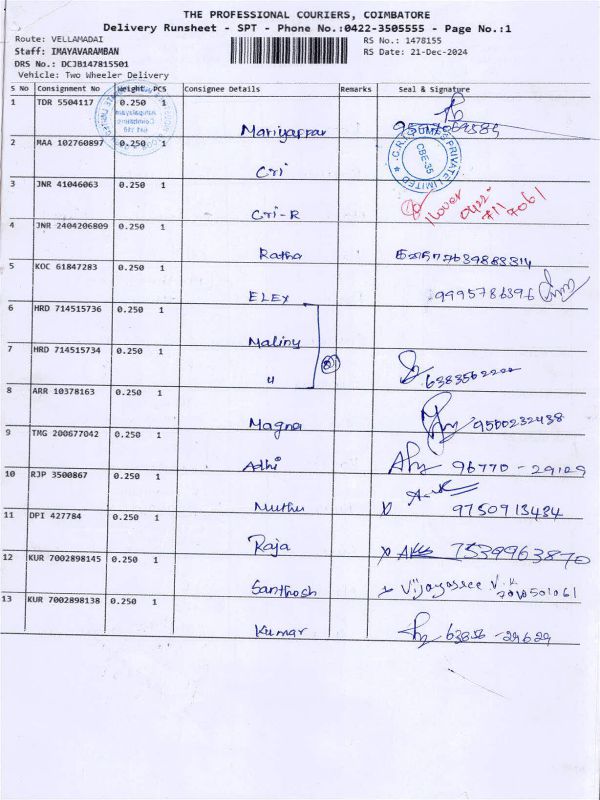 THE PROFESSIONAL COURIERS, COIMBATORE
Delivery Runsheet - SPT - Phone No.:0422-3505555 - Page No.:1
Route: VELLAMADAI RS No.: 1478155
Staff: IMAYAVARAMBAN RS Date: 21-Dec-2024
DRS No.: DCJB147815501
Vehicle: Two Wheeler Delivery
S No Consignment No Weight PCS Consignee Details Remarks Seal & Signature
1 TDR 5504117 0.250 1 Mariyappan
2 MAA 102760897 0.250 1 Cri C.R.I. PUMPS PRIVATE LIMITED CBE-35
3 JNR 41046063 0.250 1 Cri-R 0422- 711 7061
4 JNR 2404206809 0.250 1 Ratha
5 KOC 61847283 0.250 1 ELEX 9995786396
6 HRD 714515736 0.250 1 Maliny
7 HRD 714515734 0.250 1 u 6383562200
8 ARR 10378163 0.250 1 Magna 9500232438
9 TMG 200677042 0.250 1 Adhi 96770-29129
10 RJP 3500867 0.250 1 Muthu 9750913434
11 DPI 427784 0.250 1 Raja 7539963870
12 KUR 7002898145 0.250 1 Santhosh Vijayasree V.K
13 KUR 7002898138 0.250 1 Kumar 63856-29629